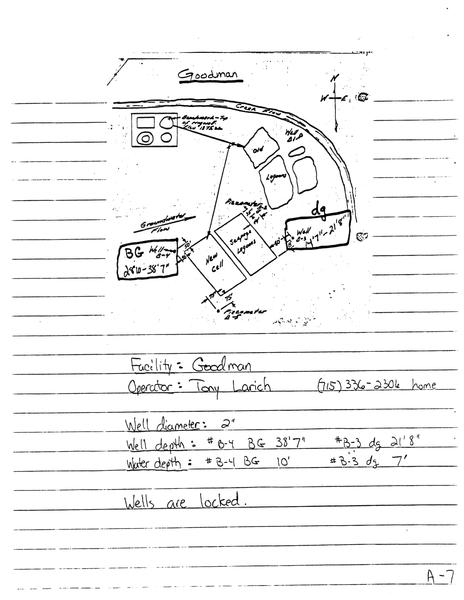 Goodman
N
W E
Benchmark-Top
Old
Lagoons
Well
Groundwater
Flow
Piezometer
Seepage
Lagoons
New
Cell
BG Well
B-4
28'10 - 38'7"
dg
Well
B-3
21'8"
Piezometer
Facility: Goodman
Operator: Tony Larich (715) 336-2306 home
Well diameter: 2"
Well depth: #B-4 BG 38'7" #B-3 dg 21'8"
Water depth: #B-4 BG 10' #B-3 dg 7'
Wells are locked.
A-7